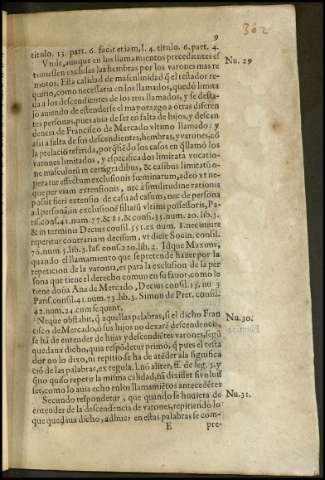 9
302
titulo. 13. part. 6. facit etiam, l. 4. titulo. 6. part. 4.
Vnde, aunque en los llamamientos precedentes es
tuuiessen exclusas las hembras por los varones mas re
motos. Esta calidad de masculinidad q̃ el testador re-
quirio, como necessaria en los llamados, quedô limita
da a los descendientes de los tres llamados, y se
jo auiendo de estenderse el mayorazgo a otras diferen
tes personas, pues auia de ser en falta de hijos, y descen
dencia de Francisco de Mercado vltimo llamado: y
assi a falta de sus descendientes, hembras, y varones, cô
la prelaciô referida, por q̃siédo los casos en q̃llamô los
varones limitados, y especificados limitata vocatio-
ne masculorũ in certis gradibus, & casibus limitatũ o-
peratur effectum exclusionis fœminarum, adeo vt ne-
que per viam extensionis, nec à similitudine rationis
possit fieri extensio de casu ad casum, nec de persona
ad personã, in exclusionẽ filiarũ vltimi possessoris, Pa-
ris. cons. 41. num. 77. & 81. & cons. 35. num. 20. lib. 3.
& in terminis Decius consil. 551. ex num. 1. nec inuire
reperitur contrarium decisum, vt dicit Socin. consil.
76. num. 5. lib. 3. Ias. cons. 20. lib. 2. Idque Maxime,
quando el llamamiento que se pretende hazer por la
repeticion de la varonia, es para la exclusion de la per
sona que tiene el derecho comun en su fauor, como lo
tiene doña Ana de Mercado, Decius consil. 15. nu. 3
Paris. consil. 41. num. 73. lib. 3. Simon de Pret. consil.
42. num. 24. cum sequent.
Neque obstabit, q̃ aquellas palabras, si el dicho Fran
cisco de Mercado, ô sus hijos no dexarê descendencia,
se hâ de entender de hijos y descendiêtes varones, segû
quedaua dicho, que respôdetur primô, q̃ pues el testa
dor no lo dixo, ni repitio se ha de atêder a la significa
ciô de las palabras, ex regula. l. nô aliter, ff. de leg. 3. y
q̃no quiso repetir la misma calidad, ni dixisset si voluis
set, como lo auia echo en los llamamiêtos antecedêtes
Secundo respondetur, que quando se huuiera de
entender de la descendencia de varones, repitiendo lo
que quedaua dicho, adhuc en estas palabras se com-
E pre-
Nu. 29
Nu. 30.
Nu. 31.